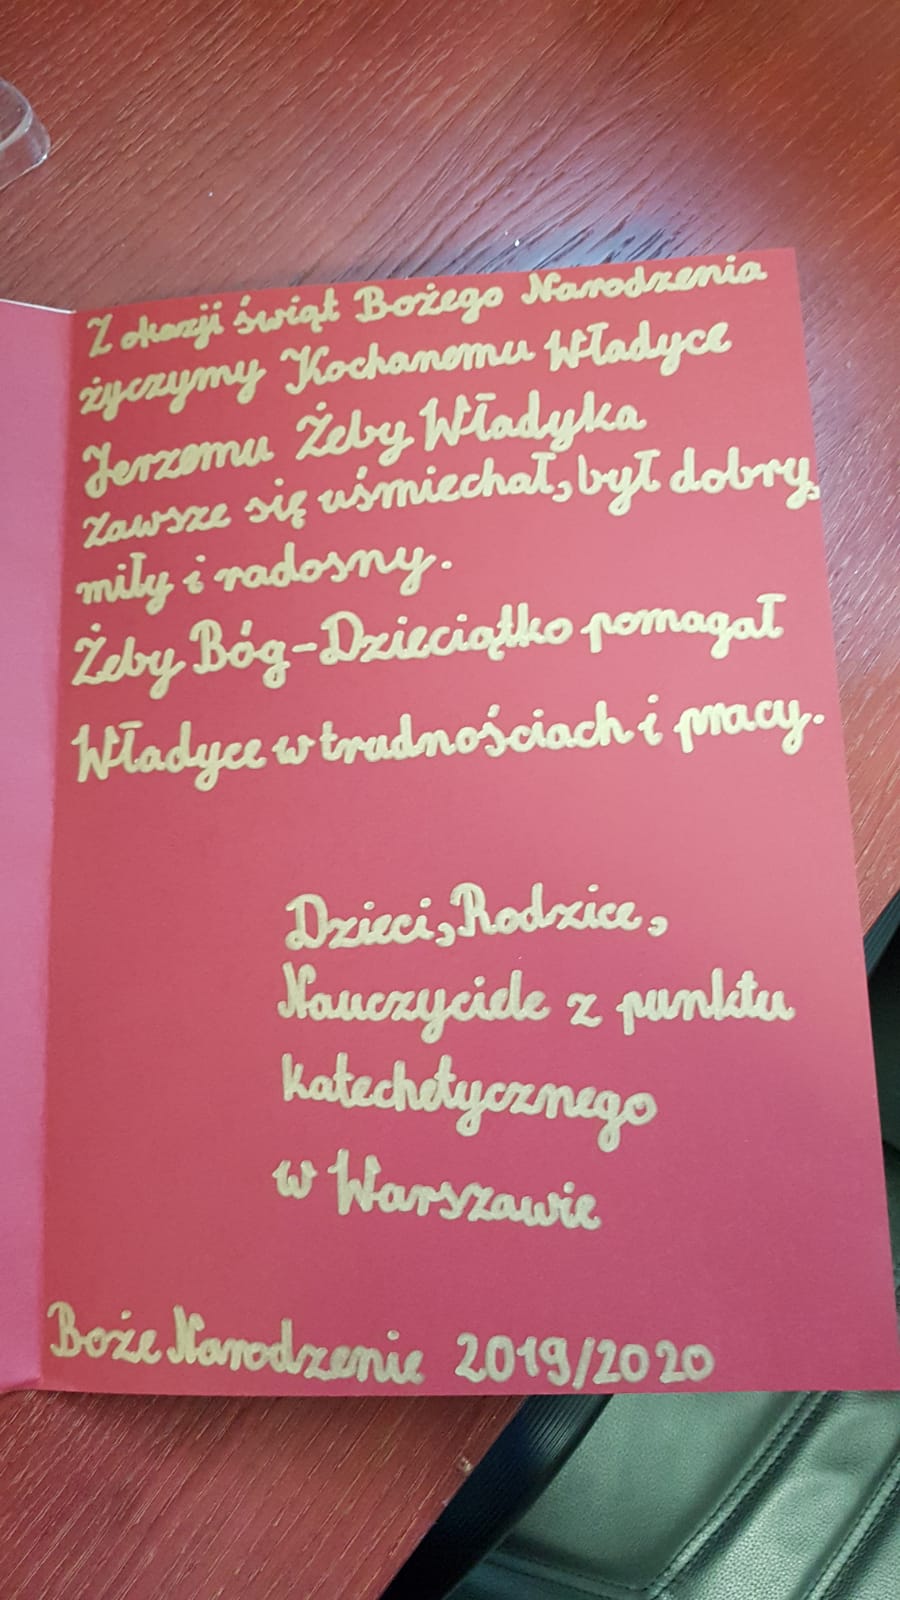 Z okazji świąt Bożego Narodzenia
życzymy Kochanemu Władyce
Jerzemu Żeby Władyka
zawsze się uśmiechał, był dobry,
miły i radosny.
Żeby Bóg-Dzieciątko pomagał
Władyce w trudnościach i pracy.
Dzieci, Rodzice,
Nauczyciele z punktu
katechetycznego
w Warszawie
Boże Narodzenie 2019/2020